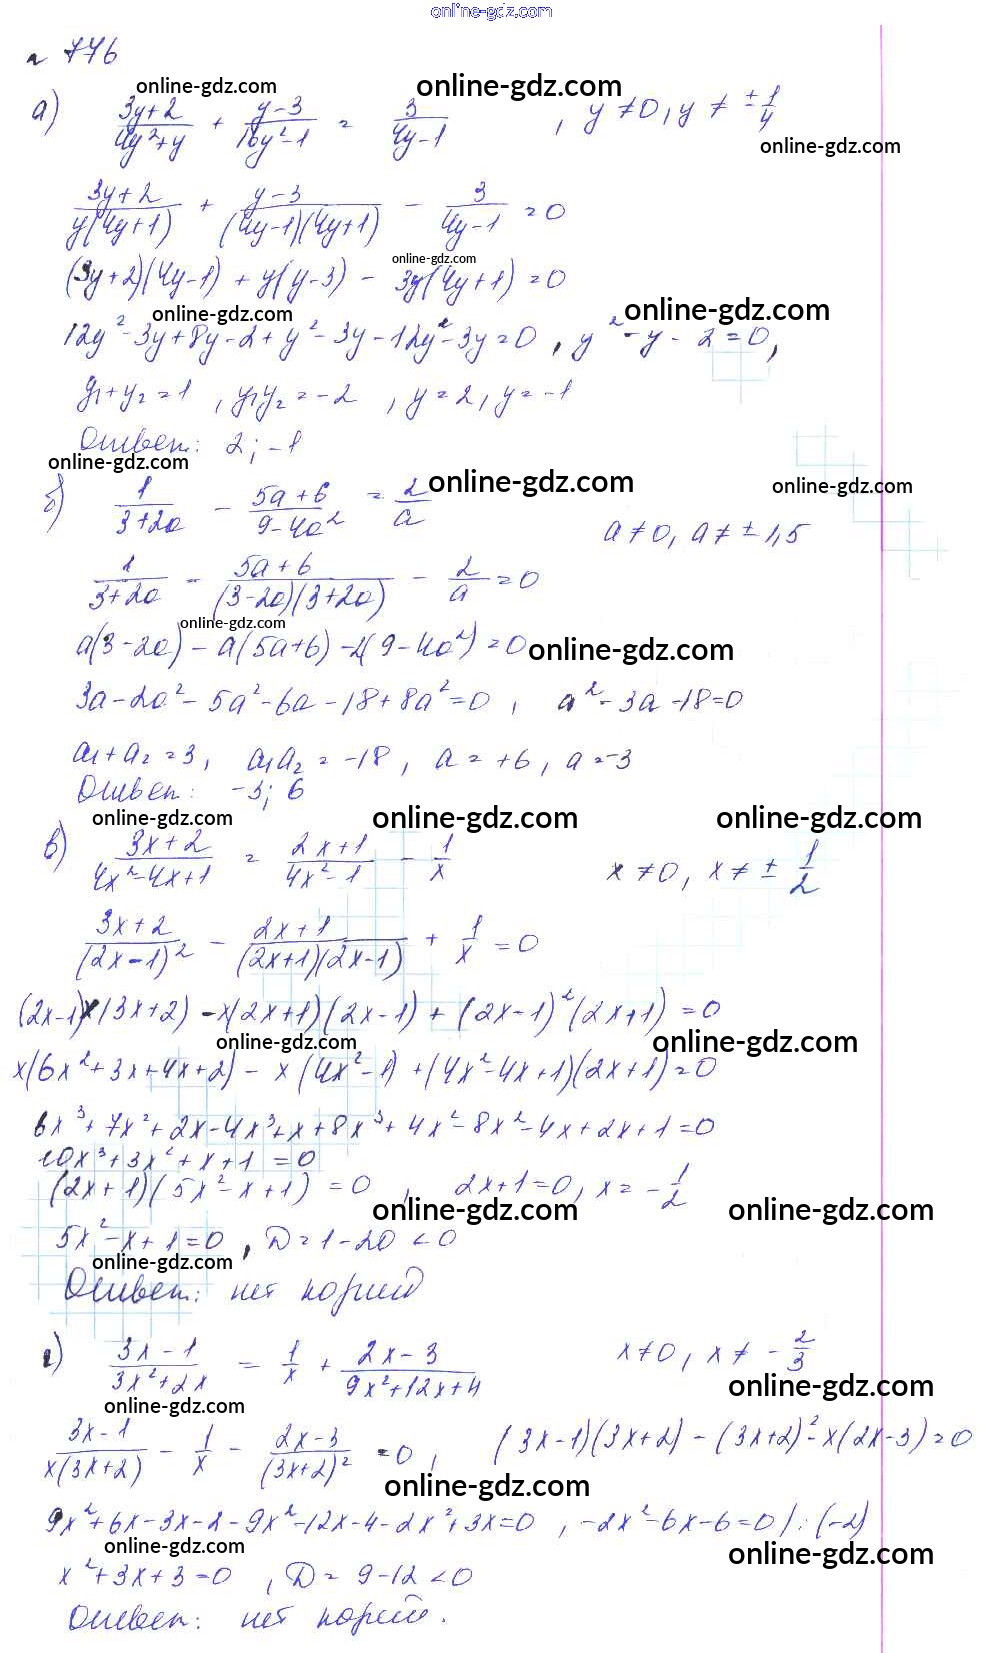 online-gdz.com
№ 776
online-gdz.com online-gdz.com
а) (3y+2)/(4y²+y) + (y-3)/(16y²-1) = 3/(4y-1) , y≠0, y≠ ±1/4
online-gdz.com
(3y+2)/(y(4y+1)) + (y-3)/((4y-1)(4y+1)) - 3/(4y-1) = 0
online-gdz.com
(3y+2)(4y-1) + y(y-3) - 3y(4y+1) = 0
online-gdz.com online-gdz.com
12y²-3y+8y-2+y²-3y-12y²-3y=0 , y²-y-2=0,
y₁+y₂=1 , y₁y₂=-2 , y=2, y=-1
Ответ: 2; -1
online-gdz.com online-gdz.com online-gdz.com
б) 1/(3+2a) - (5a+6)/(9-4a²) = 2/a a≠0, a≠±1,5
1/(3+2a) - (5a+6)/((3-2a)(3+2a)) - 2/a = 0
online-gdz.com
a(3-2a) - a(5a+6) - 2(9-4a²) = 0
online-gdz.com
3a-2a²-5a²-6a-18+8a²=0 , a²-3a-18=0
a₁+a₂=3, a₁a₂=-18, a=+6, a=-3
Ответ: -3; 6
online-gdz.com online-gdz.com online-gdz.com
в) (3x+2)/(4x²-4x+1) = (2x+1)/(4x²-1) - 1/x x≠0, x≠ ± 1/2
(3x+2)/(2x-1)² - (2x+1)/((2x+1)(2x-1)) + 1/x = 0
(2x-1)x(3x+2) - x(2x+1)(2x-1) + (2x-1)²(2x+1) = 0
online-gdz.com online-gdz.com
x(6x²+3x+4x+2) - x(4x²-1) + (4x²-4x+1)(2x+1)=0
6x³+7x²+2x-4x³+x+8x³+4x²-8x²-4x+2x+1=0
10x³+3x²+x+1=0
(2x+1)(5x²-x+1) = 0 , 2x+1=0, x=-1/2
online-gdz.com online-gdz.com
5x²-x+1=0 , D=1-20<0
online-gdz.com
Ответ: нет корней
г) (3x-1)/(3x²+2x) = 1/x + (2x-3)/(9x²+12x+4) x≠0, x≠ -2/3
online-gdz.com online-gdz.com
(3x-1)/(x(3x+2)) - 1/x - (2x-3)/(3x+2)² = 0 , (3x-1)(3x+2) - (3x+2)²-x(2x-3)=0
online-gdz.com
9x²+6x-3x-2-9x²-12x-4-2x²+3x=0 , -2x²-6x-6=0 /:(-2)
online-gdz.com online-gdz.com
x²+3x+3=0 , D=9-12<0
Ответ: нет корней.